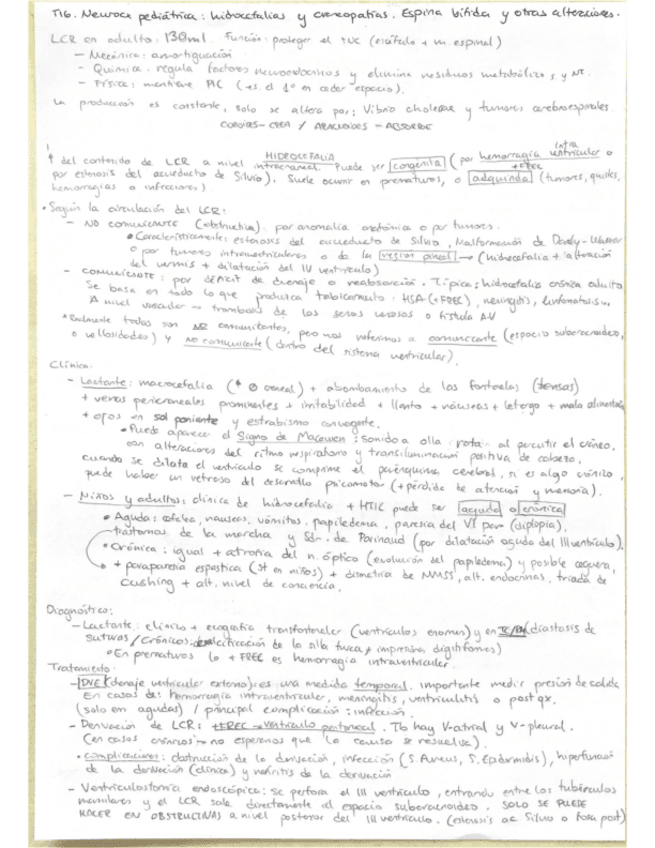 T16. Neuroqx pediátrica: hidrocefalias y craneopatías. Espina bífida y otras alteraciones.
LCR en adulto: 130ml. Función: proteger el SNC (encéfalo + m. espinal)
- Mecánica: amortiguación
- Química: regula factores neuroendocrinos y elimina residuos metabólicos y NT.
- Física: mantiene PIC (es el 1º en ceder espacio).
La producción es constante, solo se altera por: Vibrio cholerae y tumores
COROIDES-CREA / ARACNOIDES-ABSORBE
HIDROCEFALIA
↑ del contenido de LCR a nivel intracraneal. Puede ser congénita (por hemorragia intraventricular +FREC o
por estenosis del acueducto de Silvio). Suele ocurrir en prematuros, o adquirida (tumores, quistes,
hemorragias o infecciones)
• Según la circulación del LCR:
- NO COMUNICANTE (obstructiva): por anomalía anatómica o por tumores.
• Característicamente: estenosis del acueducto de Silvio, Malformación de Dandy-Walker
o por tumores intraventriculares o de la región pineal → (hidrocefalia + alteración
del vermis + dilatación del IV ventrículo)
- COMUNICANTE: por déficit de drenaje o reabsorción. Típica: hidrocefalia crónica adulto
Se basa en todo lo que produzca tabicamiento: HSA (+FREC), meningitis,
A nivel vascular → trombosis de los senos venosos o fístula A-V
* Realmente todas son NO comunicantes, pero nos referimos a comunicante (espacio subaracnoideo,
o vellosidades) y no comunicante (dentro del sistema ventricular).
Clínica:
- Lactante: macrocefalia (↑ Ø craneal) + abombamiento de las fontanelas (tensas)
+ venas pericraneales prominentes + irritabilidad + llanto + náuseas + letargo + mala alimentación
+ ojos en sol poniente y estrabismo convergente.
• Puede aparecer el Signo de Macewen: sonido a olla rota al percutir el cráneo,
con alteraciones del ritmo respiratorio y transiluminación positiva de cabeza.
cuando se dilata el ventrículo se comprime el parénquima cerebral, si es algo crónico,
puede haber un retraso del desarrollo psicomotor (+ pérdida de atención y memoria).
- Niños y adultos: clínica de hidrocefalia + HTIC puede ser aguda o crónica
• Aguda: cefalea, náuseas, vómitos, papiledema, paresia del VI par (diplopía),
trastornos de la marcha y Sdr. de Parinaud (por dilatación aguda del III ventrículo).
• Crónica: igual + atrofia del n. óptico (evolución del papiledema) y posible ceguera,
+ paraparesia espástica (st en niños) + dismetría de MMSS, alt. endocrinas, triada de
Cushing + alt. nivel de conciencia.
Diagnóstico:
- Lactante: clínica + ecografía transfontanelar (ventrículos enormes) y en TC/RM (diastasis de
suturas / Crónicos: descalcificación de la silla turca, impresiones digitiformes)
• En prematuros lo +FREC es hemorragia intraventricular.
Tratamiento:
- DVE (drenaje ventricular externo): es una medida temporal. importante medir presión de salida
En casos de: hemorragia intraventricular, meningitis, ventriculitis o postqx.
(solo en agudas) / principal complicación: infección.
- Derivación de LCR: +FREC → ventrículo peritoneal. Tb hay V-atrial y V-pleural.
(en casos crónicos → no esperamos que la causa se resuelva).
• Complicaciones: obstrucción de la derivación, infección (S. Aureus, S. Epidermidis), hiperfunción
de la derivación (clínica) y nefritis de la derivación
- Ventriculostomía endoscópica: se perfora el III ventrículo, entrando entre los tubérculos
mamilares y el LCR sale directamente al espacio subaracnoideo. SOLO SE PUEDE
HACER EN OBSTRUCTIVAS a nivel posterior del III ventrículo. (estenosis ac Silvio o fosa post)